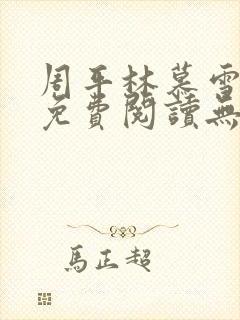 周平林慕雪
免費閱讀無
馬正超